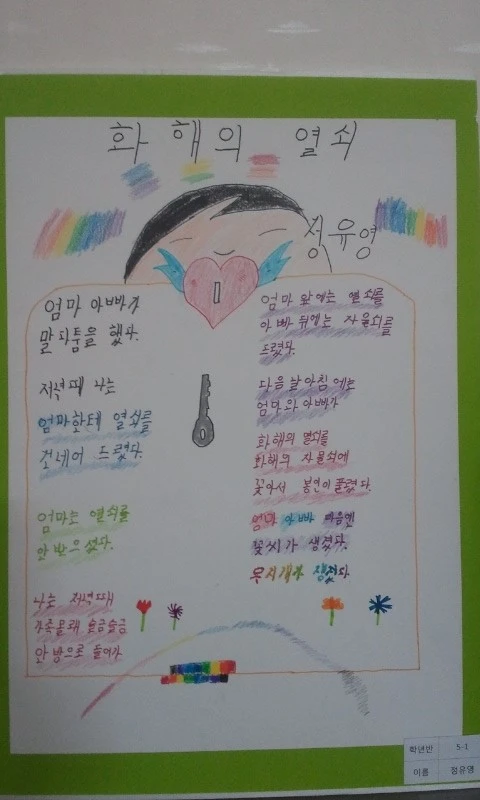 화해의 열쇠
정유영
엄마 아빠가
말다툼을 했다.
저녁때 나는
엄마한테 열쇠를
건네어 드렸다.
엄마는 열쇠를
안 받으셨다.
나는 저녁때
가족몰래 슬금슬금
안방으로 들어가
엄마 앞에는 열쇠를
아빠 뒤에는 자물쇠를
드렸다.
다음날아침에는
엄마와 아빠가
화해의 열쇠를
화해의 자물쇠에
꽂아서 봉인이 풀렸다.
엄마 아빠 마음엔
꽃씨가 생겼다.
무지개가 생겼다.
학년반 5-1
이름 정유영